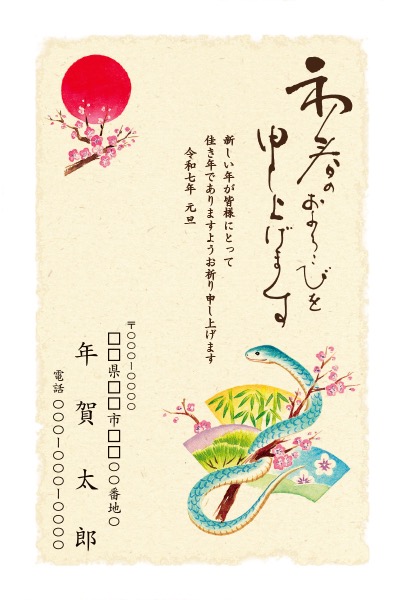 初春の
およろこびを
申し上げます
新しい年が皆様にとって
佳き年でありますようお祈り申し上げます
令和七年 元旦
〒○○○-○○○○
□□県□□市□□○○番地○
年賀太郎
電話 ○○○-○○○-○○○○